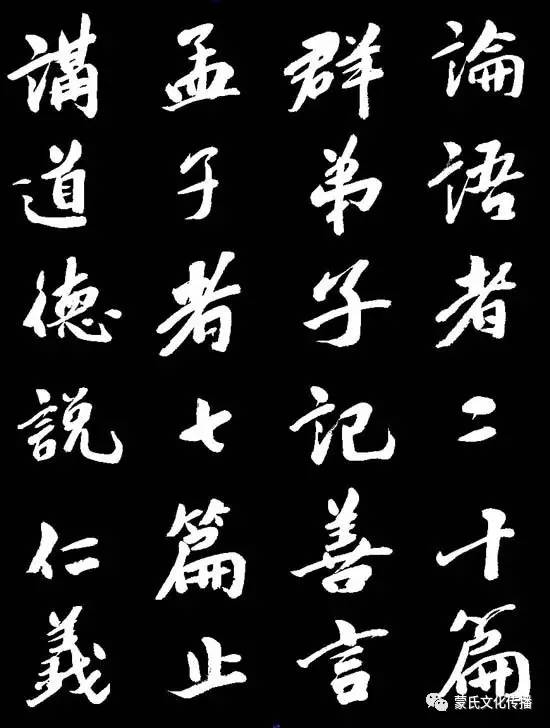 論語者二十篇
群弟子記善言
孟子者七篇止
講道德説仁義
蒙氏文化传播